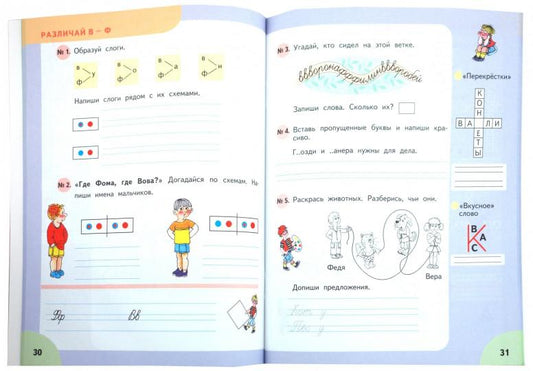 РАЗЛИЧАЙ В – Ф
№ 1. Образуй слоги.
в ф у
в ф о
в ф а
в ф и
Напиши слоги рядом с их схемами.
№ 2. «Где Фома, где Вова?» Догадайся по схемам. На-
пиши имена мальчиков.
Фф Вв
30
№ 3. Угадай, кто сидел на этой ветке.
Запиши слова. Сколько их?
№ 4. Вставь пропущенные буквы и напиши кра-
сиво.
Г..озди и ..анера нужны для дела.
№ 5. Раскрась животных. Разберись, чьи они.
Федя
Вера
Допиши предложения.
«Перекрёстки»
КОНФЕТЫ
ВАФЛИ
«Вкусное»
слово
В
К А
С
31